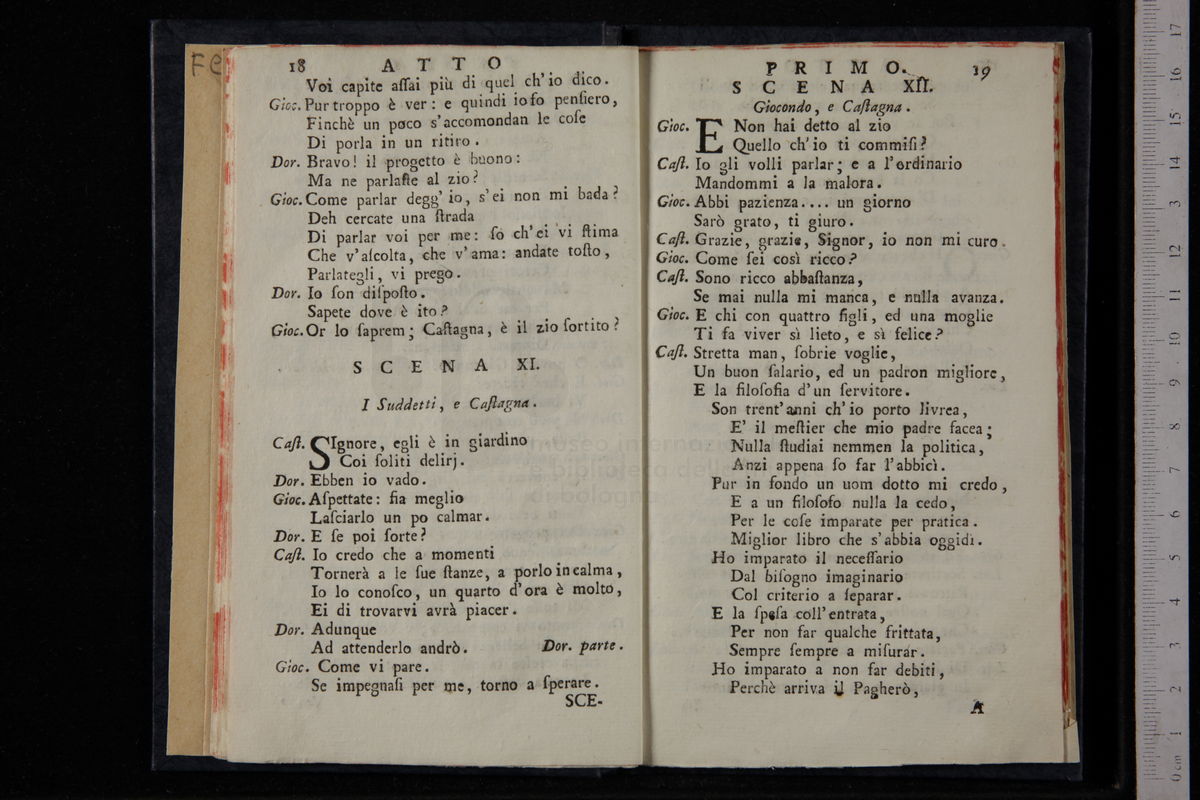 Fe
18 ATTO
Voi capite aſſai più di quel ch'io dico.
Gioc. Pur troppo è ver: e quindi io fo penſiero,
Finchè un poco s'accomondan le coſe
Di porla in un ritiro.
Dor. Bravo! il progetto è buono:
Ma ne parlaſte al zio?
Gioc. Come parlar degg'io, s'ei non mi bada?
Deh cercate una ſtrada
Di parlar voi per me: ſo ch'ei vi ſtima
Che v'aſcolta, che v'ama: andate toſto,
Parlategli, vi prego.
Dor. Io ſon diſpoſto.
Sapete dove è ito?
Gioc. Or lo ſaprem; Caſtagna, è il zio ſortito?
SCENA XI.
I Suddetti, e Caſtagna.
Caſt. SIgnore, egli è in giardino
Coi ſoliti delirj.
Dor. Ebben io vado.
Gioc. Aſpettate: fia meglio
Laſciarlo un po calmar.
Dor. E ſe poi ſorte?
Caſt. Io credo che a momenti
Tornerà a le ſue ſtanze, a porlo in calma,
Io lo conoſco, un quarto d'ora è molto,
Ei di trovarvi avrà piacer.
Dor. Adunque
Ad attenderlo andrò. Dor. parte.
Gioc. Come vi pare.
Se impegnaſi per me, torno a ſperare.
SCE-
PRIMO. 19
SCENA XII.
Giocondo, e Caſtagna.
Gioc. E Non hai detto al zio
Quello ch'io ti commiſi?
Caſt. Io gli volli parlar; e a l'ordinario
Mandommi a la malora.
Gioc. Abbi pazienza.... un giorno
Sarò grato, ti giuro.
Caſt. Grazie, grazie, Signor, io non mi curo.
Gioc. Come ſei così ricco?
Caſt. Sono ricco abbaſtanza,
Se mai nulla mi manca, e nulla avanza.
Gioc. E chi con quattro figli, ed una moglie
Ti fa viver sì lieto, e sì felice?
Caſt. Stretta man, ſobrie voglie,
Un buon ſalario, ed un padron migliore,
E la filoſofia d'un ſervitore.
Son trent'anni ch'io porto livrea,
E' il meſtier che mio padre facea;
Nulla ſtudiai nemmen la politica,
Anzi appena ſo far l'abbicì.
Pur in fondo un uom dotto mi credo,
E a un filoſofo nulla la cedo,
Per le coſe imparate per pratica.
Miglior libro che s'abbia oggidì.
Ho imparato il neceſſario
Dal biſogno imaginario
Col criterio a ſeparar.
E la ſpeſa coll'entrata,
Per non far qualche frittata,
Sempre ſempre a miſurar.
Ho imparato a non far debiti,
Perchè arriva il Pagherò,
A
museo internazionale
e biblioteca della
di bologna
0 cm 1 2 3 4 5 6 7 8 9 10 11 12 13 14 15 16 17